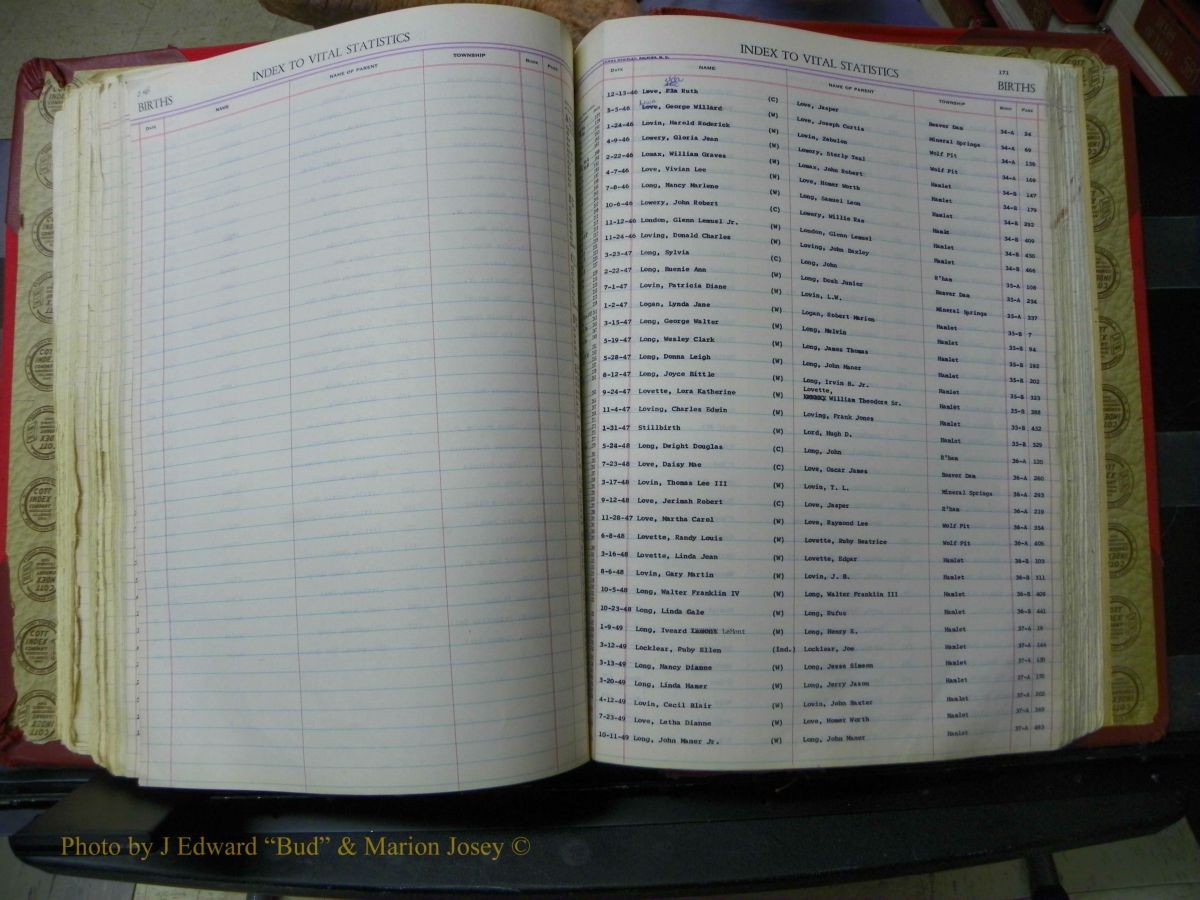 INDEX TO VITAL STATISTICS
BIRTHS
DATE NAME NAME OF PARENT TOWNSHIP BOOK PAGE
INDEX TO VITAL STATISTICS
171
BIRTHS
DATE NAME NAME OF PARENT TOWNSHIP BOOK PAGE
12-13-46 Love, Ruth (C) Love, Jasper Beaver Dam 34-A 24
3-5-46 Love, George Willard (W) Love, Joseph Curtis Mineral Springs 34-A 69
1-24-46 Lovin, Harold Roderick (W) Lovin, Zebulon Wolf Pit 34-A 139
4-9-46 Lowery, Gloria Jean (W) Lowery, Sterly Teal Wolf Pit 34-A 169
2-22-46 Lomax, William Graves (W) Lomax, John Robert Hamlet 34-B 147
4-7-46 Love, Vivian Lee (W) Love, Homer Worth Hamlet 34-B 179
7-8-46 Long, Nancy Marlene (W) Long, Samuel Leon 34-B 292
10-6-46 Lowery, John Robert (C) Lowery, Willie Rae Hamlet 34-B 409
11-12-46 London, Glenn Lemuel Jr. (W) London, Glenn Lemuel Hamlet 34-B 450
11-24-46 Loving, Donald Charles (W) Loving, John Baxley Hamlet 34-B 466
3-23-47 Long, Sylvia (C) Long, John R'ham 35-A 108
2-22-47 Long, Buenie Ann (W) Long, Dosh Junior Beaver Dam 35-A 234
7-1-47 Lovin, Patricia Diane (W) Lovin, L.W. Mineral Springs 35-A 337
1-2-47 Logan, Lynda Jane (W) Logan, Robert Marion Hamlet 35-B 7
3-15-47 Long, George Walter (W) Long, Melvin Hamlet 35-B 94
5-19-47 Long, Wesley Clark (W) Long, James Thomas Hamlet 35-B 192
5-28-47 Long, Donna Leigh (W) Long, John Maner Hamlet 35-B 202
8-12-47 Long, Joyce Bittle (W) Long, Irvin H. Jr. Hamlet 35-B 323
9-24-47 Lovette, Lora Katherine (W) Lovette, William Theodore Sr. Hamlet 35-B 388
11-4-47 Loving, Charles Edwin (W) Loving, Frank Jones Hamlet 35-B 452
1-31-47 Stillbirth (W) Lord, Hugh D. Hamlet 35-B 529
5-24-48 Long, Dwight Douglas (C) Long, John R'ham 36-A 120
7-23-48 Love, Daisy Mae (C) Love, Oscar James Beaver Dam 36-A 260
3-17-48 Lovin, Thomas Lee III (W) Lovin, T. L. Mineral Springs 36-A 293
9-12-48 Love, Jerimah Robert (C) Love, Jasper R'ham 36-A 219
11-28-47 Love, Martha Carol (W) Love, Raymond Lee Wolf Pit 36-A 354
6-8-48 Lovette, Randy Louis (W) Lovette, Ruby Beatrice Wolf Pit 36-A 405
3-16-48 Lovette, Linda Jean (W) Lovette, Edgar Hamlet 36-B 103
8-6-48 Lovin, Gary Martin (W) Lovin, J. B. Hamlet 36-B 311
10-5-48 Long, Walter Franklin IV (W) Long, Walter Franklin III Hamlet 36-B 409
10-23-48 Long, Linda Gale (W) Long, Rufus Hamlet 36-B 441
1-9-49 Long, Iveard Lamont LeMont (W) Long, Henry E. Hamlet 37-A 19
3-12-49 Locklear, Ruby Ellen (Ind.) Locklear, Joe Hamlet 37-A 144
3-13-49 Long, Nancy Dianne (W) Long, Jesse Simson Hamlet 37-A
3-20-49 Long, Linda Hamer (W) Long, Jerry Jason Hamlet 37-A 170
4-12-49 Lovin, Cecil Blair (W) Lovin, John Baxter Hamlet 37-A
7-23-49 Love, Letha Dianne (W) Love, Homer Worth Hamlet 37-A
10-11-49 Long, John Maner Jr. (W) Long, John Maner Hamlet 37-A 483
COTT INDEX COMPANY
Photo by J Edward “Bud” & Marion Josey ©